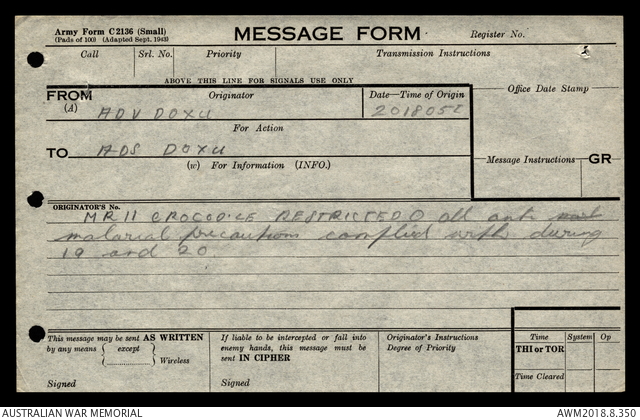 Army Form C2136 (Small)
(Pads of 100) (Adapted Sept. 1943)
MESSAGE FORM
Register No.
Call Srl. No. Priority Transmission Instructions
ABOVE THIS LINE FOR SIGNALS USE ONLY
FROM (A) Originator Date—Time of Origin
ADV DOXU 201805Z
Office Date Stamp
For Action
TO ADS DOXU
(w) For Information (INFO.)
Message Instructions GR
ORIGINATOR'S No.
MR11 CROCODILE RESTRICTED O all anti
malarial precautions complied with during
19 and 20
This message may be sent AS WRITTEN
by any means except
Wireless
Signed
If liable to be intercepted or fall into
enemy hands, this message must be
sent IN CIPHER
Signed
Originator's Instructions
Degree of Priority
Time System Op
THI or TOR
Time Cleared
AUSTRALIAN WAR MEMORIAL AWM2018.8.350